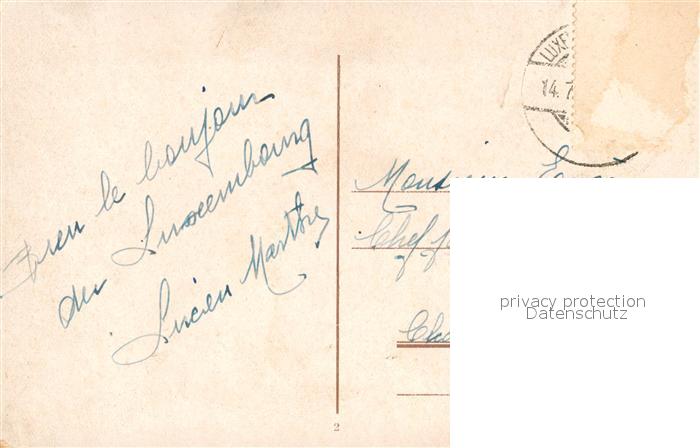 Bien le bonjour
du Luxembourg
Lucien
LUXE
14. 7
Monsieur
Chef
2
privacy protection
Datenschutz